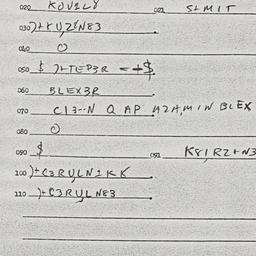 020 KOV1L8 021 S+MIT
030 )+KU,Z1N83
040 O
050 $ )+TEP3R -+$.
060 BLEX3R
070 C13--N Q AP H2A,MIN BLEX
080 O
090 $ 091 K81,RZ+N3
100 )+C3RULN1KK
110 )+C3RULN83